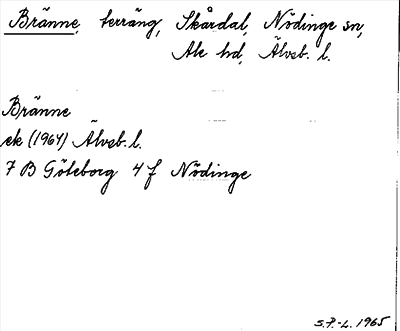 Bränne, terräng, Skårdal, Nödinge sn,
Ale hd, Älvsb. l.
Bränne
ek (1964) Älvsb. l.
7 B Göteborg 4 f Nödinge
S.P.-L. 1965